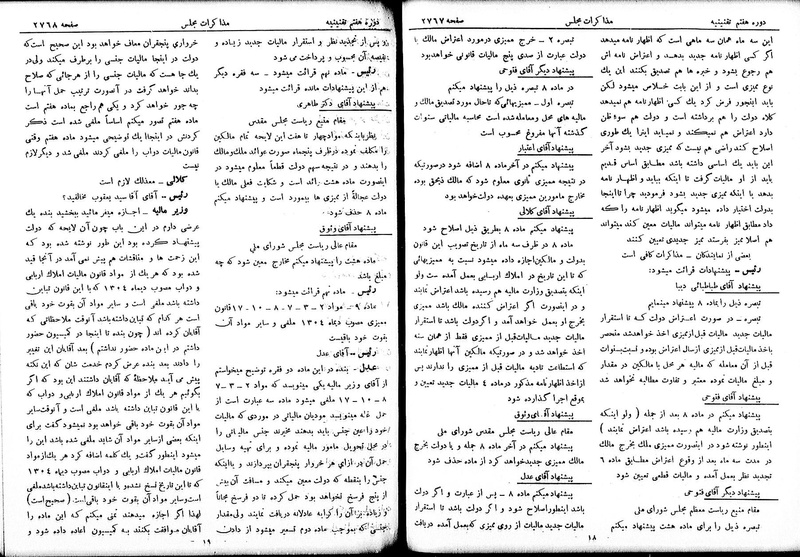 دوره هفتم تقنینیه
مذاکرات مجلس
صفحه ۲۷۶۷
این سه ماه همان سه ماهی است که اظهار نامه میدهد
اگر کسی اظهار نامه جدید بدهد و اعتراض نامه اش
هم رجوع بشود و خبره ها هم تصدیق بکنند این یک
نوع ممیزی است و از این بابت خلاص میشود لکن
باید اینجور فرض کرد یک کسی اظهار نامه هم نمیدهد
کلاه دولت را هم برداشته است و دولت هم سوء ظن
دارد اعتراض هم نمیکند و نمیاید اینرا یک طوری
اصلاح کند راضی هم نیست که ممیزی جدید بشود آخر
این باید یک اساسی داشته باشد مطابق اساس قدیم
باید از او مالیات گرفت تا اینکه بیاید و اظهار نامه
بدهد یا اینکه ممیزی جدید بشود فرمودید چرا تا اینجا
بدولت اختیار داده میشود میگوید اظهار نامه را که
داد مطابق اظهار نامه میتواند مالیات معین کند میتواند
هم اصلا ممیز بفرستد ممیز جدیدی تعیین کنند
بعضی از نمایندگان – مذاکرات کافی است
رئیس – پیشنهادات قرائت میشود:
پیشنهاد آقای طباطبائی دیبا
تبصره ذیل را بماده ۸ پیشنهاد مینمایم
تبصره – در صورت اعتراض دولت که تا استقرار
مالیات جدید مالیات قبل از ممیزی اخذ خواهد شد منحصر
باخذ مالیات قبل از ممیزی از سال اعتراض بوده و نسبت بسنوات
قبل از آن معامله که مالیه هر محل با مالکین یا مالک
و مبلغ مالیات نموده معتبر و تفاوت مطالبه نخواهد شد
پیشنهاد آقای فتوحی
پیشنهاد میکنم در ماده ۸ بعد از جمله ( ولو اینکه
بتصدیق وزارت مالیه هم رسیده باشد اعتراض نمایند )
اینطور نوشته شود در اینصورت ممیزی ملک بخرج مالک
در مدت سه ماه بعد از وقوع اعتراض مطابق ماده ۶
تجدید نظر بعمل آمده و مالیات قطعی تعیین شود
پیشنهاد دیگر آقای فتوحی
مقام منیع ریاست معظم مجلس شورای ملی
تبصره ذیل را برای ماده هشت پیشنهاد میکنم
تبصره ۲ – خرج ممیزی در مورد اعتراض مالک با
دولت عبارت از صدی پنج مالیات قانونی خواهد بود
پیشنهاد دیگر آقای فتوحی
در ماده ۸ تبصره ذیل را پیشنهاد میکنم
تبصره اول – ممیزیهائی که تاحال مورد تصدیق مالک و
مالیه های محل و معامله شده است محاسبه مالیاتی سنوات
گذشته آنها مفروغ محسوب است
پیشنهاد آقای اعتبار
پیشنهاد میکنم در آخر ماده ۸ اضافه شود در صورتیکه
در نتیجه ممیزی ثانوی معلوم شود که مالک ذیحق بوده
مخارج مأمورین ممیزی بعهده دولت خواهد بود
پیشنهاد آقای کلالی
پیشنهاد میکنم ماده ۸ بطریق ذیل اصلاح شود
ماده ۸ در ظرف سه ماه از تاریخ تصویب این قانون
بدولت و مالکین اجازه داده میشود نسبت به ممیزیهائی
که تا این تاریخ در املاک اربابی بعمل آمده است ولو
اینکه بتصدیق وزارت مالیه هم رسیده باشد اعتراض بنمایند
و در اینصورت اگر اعتراض کننده مالک باشد ممیزی
بخرج او بعمل خواهد آمد و اگر دولت باشد تا استقرار
مالیات جدید مالیات قبل از ممیزی فقط از همان سنه
اخذ خواهد شد و در صورتیکه مالکین آنها اظهار نمایند
که استطاعت تادیه مالیات قبل از ممیزی را ندارند پس
از اخذ اظهار نامه مذکور در ماده ٤ مالیات جدید تعیین و
بموقع اجرا گذارده شود
پیشنهاد آقای وثوق
مقام عالی ریاست مجلس مقدس شورای ملی
پیشنهاد میکنم در آخر ماده ۸ جمله و یا دولت بخرج
مالک ممیزی جدید خواهد کرد از ماده حذف شود
پیشنهاد آقای عدل
پیشنهاد میکنم ماده ۸ – پس از عبارت و اگر دولت
باشد اینطور اصلاح شود و اگر دولت باشد تا استقرار
مالیات جدید مالیات از روی ممیزی که بعمل آمده دریافت
۱۸
دوره هفتم تقنینیه
مذاکرات مجلس
صفحه ۲۷۶۸
و پس از تجدید نظر و استقرار مالیات جدید زیاده و
نقیصه آن بحسوب و پرداختی می شود
رئیس – ماده نهم قرائت میشود – سه فقره دیگر
هم از این پیشنهادات مانده قرائت میشود
پیشنهاد آقای دکتر طاهری
مقام منیع ریاست مجلس مقدس
نظر باینکه مواد چهار تا هفت این لایحه تمام مالکین
را مکلف نموده در ظرف پنجماه صورت عوائد ملک و مالک
را بدهند و در نتیجه سهم دولت قطعاً معلوم میشود در
اینصورت ماده هشت زائد است و شکایت فعلی مالک یا
دولت عجالةً از ممیزی ها بیمورد است و پیشنهاد میکنم
ماده ۸ حذف شود
پیشنهاد آقای وثوق
مقام عالی ریاست مجلس شورای ملی
ماده هشت را پیشنهاد میکنم مخارج معین شود که چه
مبلغ باشد
رئیس – ماده نهم قرائت میشود:
ماده ۹ – مواد ۲-۳-۷-۸-۱۰-۱۷ قانون
ممیزی مصوب دیماه ۱۳۰۴ ملغی و سایر مواد آن
بقوت خود باقیست
رئیس – آقای عدل
عدل – بنده در این ماده دو فقره توضیح میخواستم
از آقای وزیر مالیه یکی مینویسد که مواد ۲-۳-۷
۸-۱۰-۱۷ ملغی میشود ماده سه عبارت است از
حمل غله مینویسد مودیان مالیاتی در موردی که مالیات
خود را عین جنس باید بدهند مخیرند جنس مالیاتی را
در محلی تحویل مامور مالیه نموده و برای تهیه وسایل
حمل آن در ازای هر خروار پنجقران بپردازند و یا اینکه
جنس را بنقطه که دولت معین میکند و مسافت آن بیش
از پنج فرسخ نخواهد بود حمل کرده تا دو فرسخ مجاناً
و زیاده بر آن را کرایه عادلانه دریافت نمایند ولی مقدار
جنسی که بموجب ماده دوم تسعیر میشود از دادن
خرواری پنجقران معاف خواهد بود این صحیح است که
دولت در اینجا مالیات جنسی را برطرف میکند ولی در
یک جا هست که مالیات جنسی را از هر جائی که صلاح
بداند خواهد گرفت در آنصورت ترتیب حمل آنها را
چه جور خواهد کرد و یکی هم راجع بماده هفتم است
ماده هفتم تصور میکنم اساساً ملغی شده است ذکر
کردنش در اینجا یک توضیحی میشود ماده هفتم وقتی
قانون مالیات دواب را ملغی کردند ملغی شد و دیگر لازم
نیست
کلالی – معذلک لازم است
رئیس – آقای آقا سید یعقوب مخالفید؟
وزیر مالیه – اجازه میفرمائید ببخشید بنده یک
عرضی دارم در این باب چون آن لایحه که دولت
پیشنهاد کرده بود این طور نوشته شده بود که
این زحمت ها و مناقشات هم پیش نمی آمد در آنجا قید
شده بود که هر یک از مواد قانون مالیات املاک اربابی
و دواب مصوب دیماه ۱۳۰۴ که با این قانون تباین
داشته باشد ملغی است و سایر مواد آن بقوت خود باقی
است هر کدام که تباین داشته باشد آنوقت ملاحظاتی که
آقایان کرده اند ( چون بنده تا اینجا در کمیسیون حضور
داشتم در این ماده حضور نداشتم ) بعد آقایان این تغییر
را دادند بعد بنده عرض کردم خدمت شان که این نکته
پیش می آید ملاحظۀ که آقایان داشتند این بود که اگر
بگوئیم هر یک از مواد قانون املاک اربابی و دواب که
با این قانون تباین داشته باشد ملغی است و آنوقت سایر
مواد آن بقوت خود باقی خواهد بود نمیشود گفت برای
اینکه بعضی از سایر مواد آن شاید ملغی شده باشد این را
میشود اینطور گفت و یک کلمه اضافه کرد هر یک از مواد
قانون مالیات املاک اربابی و دواب مصوب دیماه ۱۳۰۴
که تا این تاریخ نسخ نشده و با اینقانون تباین داشته باشد ملغی
است و سایر مواد آن بقوت خود باقی است. (صحیح است)
لهذا اگر اجازه میدهند تمنی میکنم که این ماده را
آقایان موافقت بکنند به کمیسیون اعاده داده شود و
۱۹